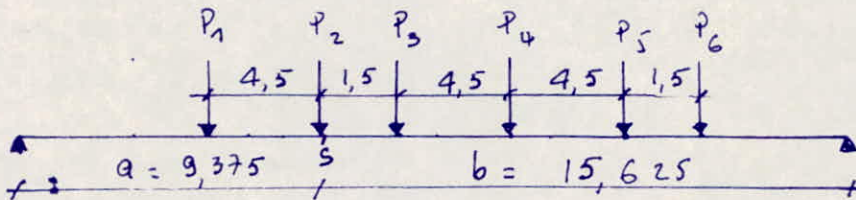 P1 P2 P3 P4 P5 P6
4,5 1,5 4,5 4,5 1,5
a = 9,375 S b = 15,625